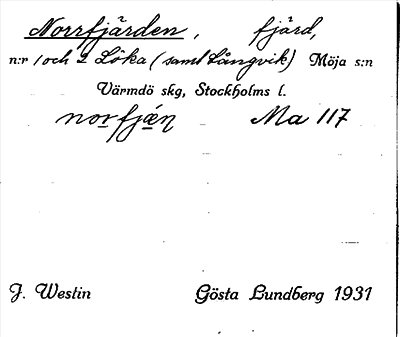 Norrfjärden, fjärd,
n:r 1 och 2 Löka (samt Långvik) Möja s:n
Värmdö skg, Stockholms l.
norfjæ̣ṇ Ma 117
J. Westin Gösta Lundberg 1931